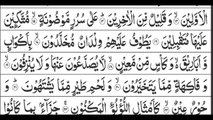 الْأَوَّلِينَ ۝ وَقَلِيلٌ مِّنَ الْآخِرِينَ ۝ عَلَىٰ سُرُرٍ مَّوْضُونَةٍ ۝ مُّتَّكِئِينَ
عَلَيْهَا مُتَقَٰبِلِينَ ۝ يَطُوفُ عَلَيْهِمْ وِلْدَانٌ مُّخَلَّدُونَ ۝ بِأَكْوَابٍ
وَّأَبَارِيقَ ۙ وَكَأْسٍ مِّن مَّعِينٍ ۝ لَّا يُصَدَّعُونَ عَنْهَا وَلَا يُنزِفُونَ ۝
وَفَاكِهَةٍ مِّمَّا يَتَخَيَّرُونَ ۝ وَلَحْمِ طَيْرٍ مِّمَّا يَشْتَهُونَ ۝ وَ
حُورٌ عِينٌ ۝ كَأَمْثَالِ اللُّؤْلُؤِ الْمَكْنُونِ ۝ جَزَاءً بِمَا كَانُوا